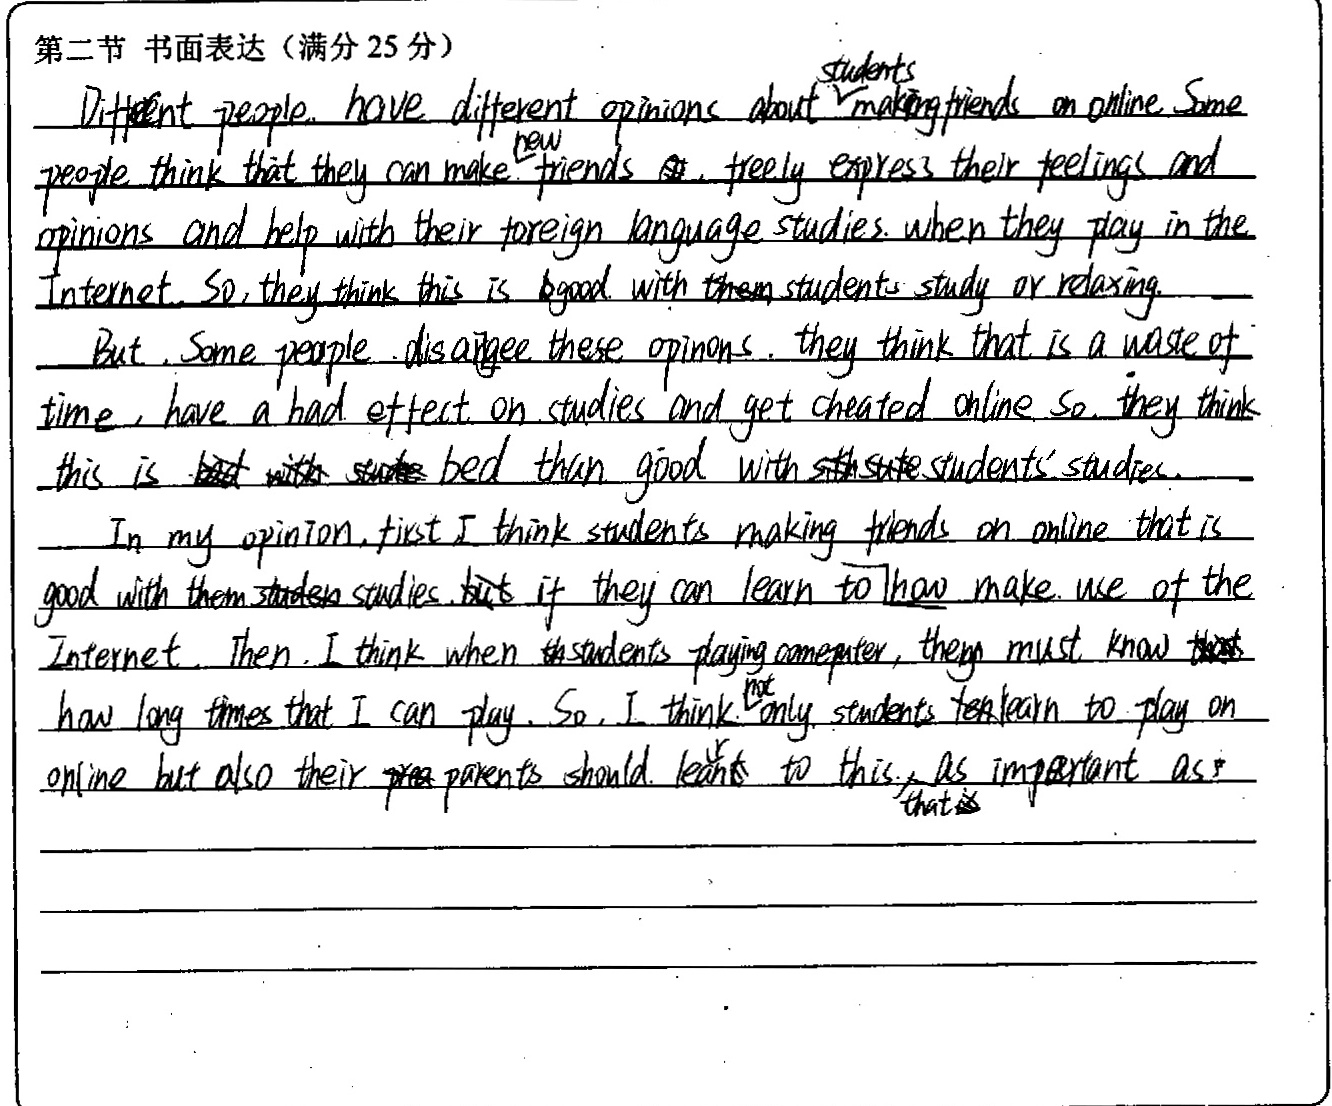 第二节 书面表达（满分 25 分）
Different people. have different opinions about students making friends on online. Some
people think that they can make new friends, freely express their feelings and
opinions and help with their foreign language studies. when they play in the
Internet. So, they think this is good with students study or relaxing.
But. Some people disargee these opinons. they think that is a waste of
time, have a bad effect on studies and get cheated online so. they think
this is bed than good with students' studies.
In my opinion, first I think students making friends on online that is
good with studies. if they can learn to how make use of the
Internet. Then. I think when students playing comeputer, they must know
how long times that I can play. So, I think not only students learn to play on
online but also their parents should learn to this, that as important as.